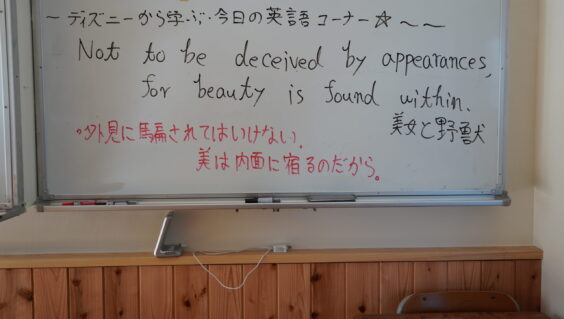 ~ディズニーから学ぶ·今日の英語コーナー☆~~
Not to be deceived by appearances,
for beauty is found within.
美女と野獣
·外見に騙されてはいけない.
美は内面に宿るのだから。